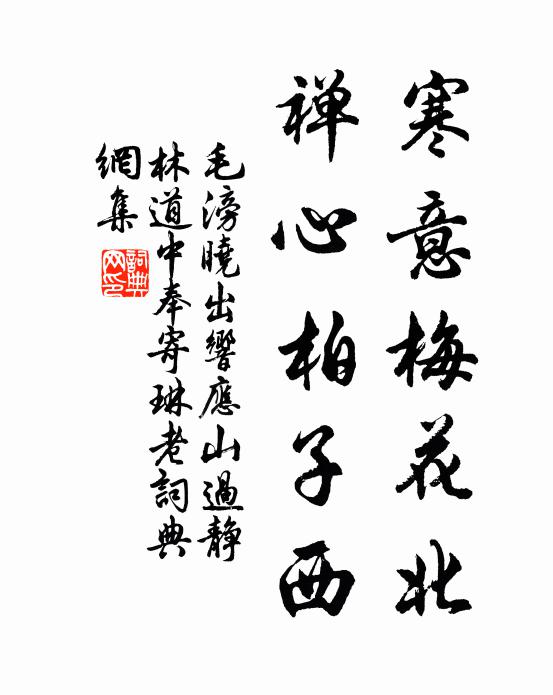 寒意梅花北
禅心柏子西
毛滂曉出響應山過静
林道中奉寄琳老詞典
網集
詞典网印